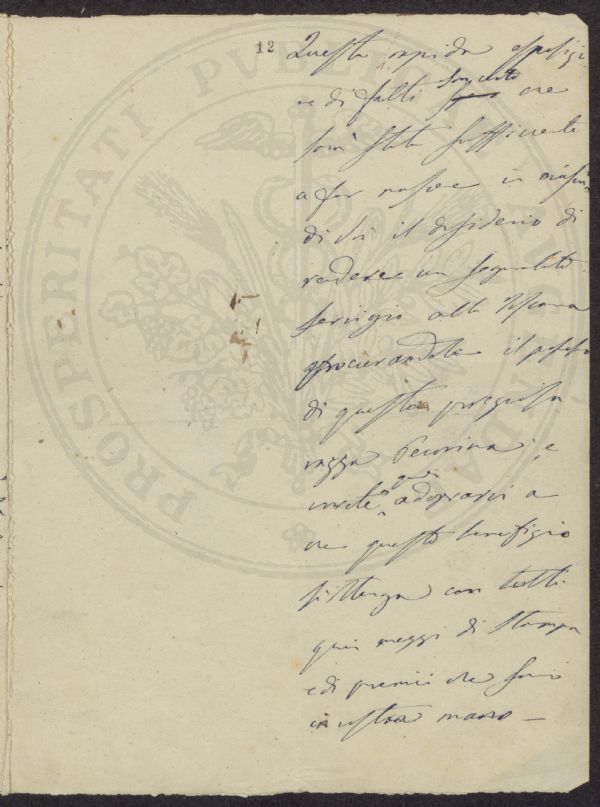 12
Questa rapida esposizio
ne di fatti son certo che
sarà stata sufficiente
a far nascere in ciascun
di Voi il desiderio di
rendere un segnalato
servigio alla Toscana
procurandole il possesso
di questa pregiosa
razza Pecorina, e
vorrete quin adoprarvi a
che questo benefizio
si ottenga con tutti
quei mezzi di stampa
e di premii che sono
in vostra mano —
PROSPERITATI PVBLICAE AVGENDAE